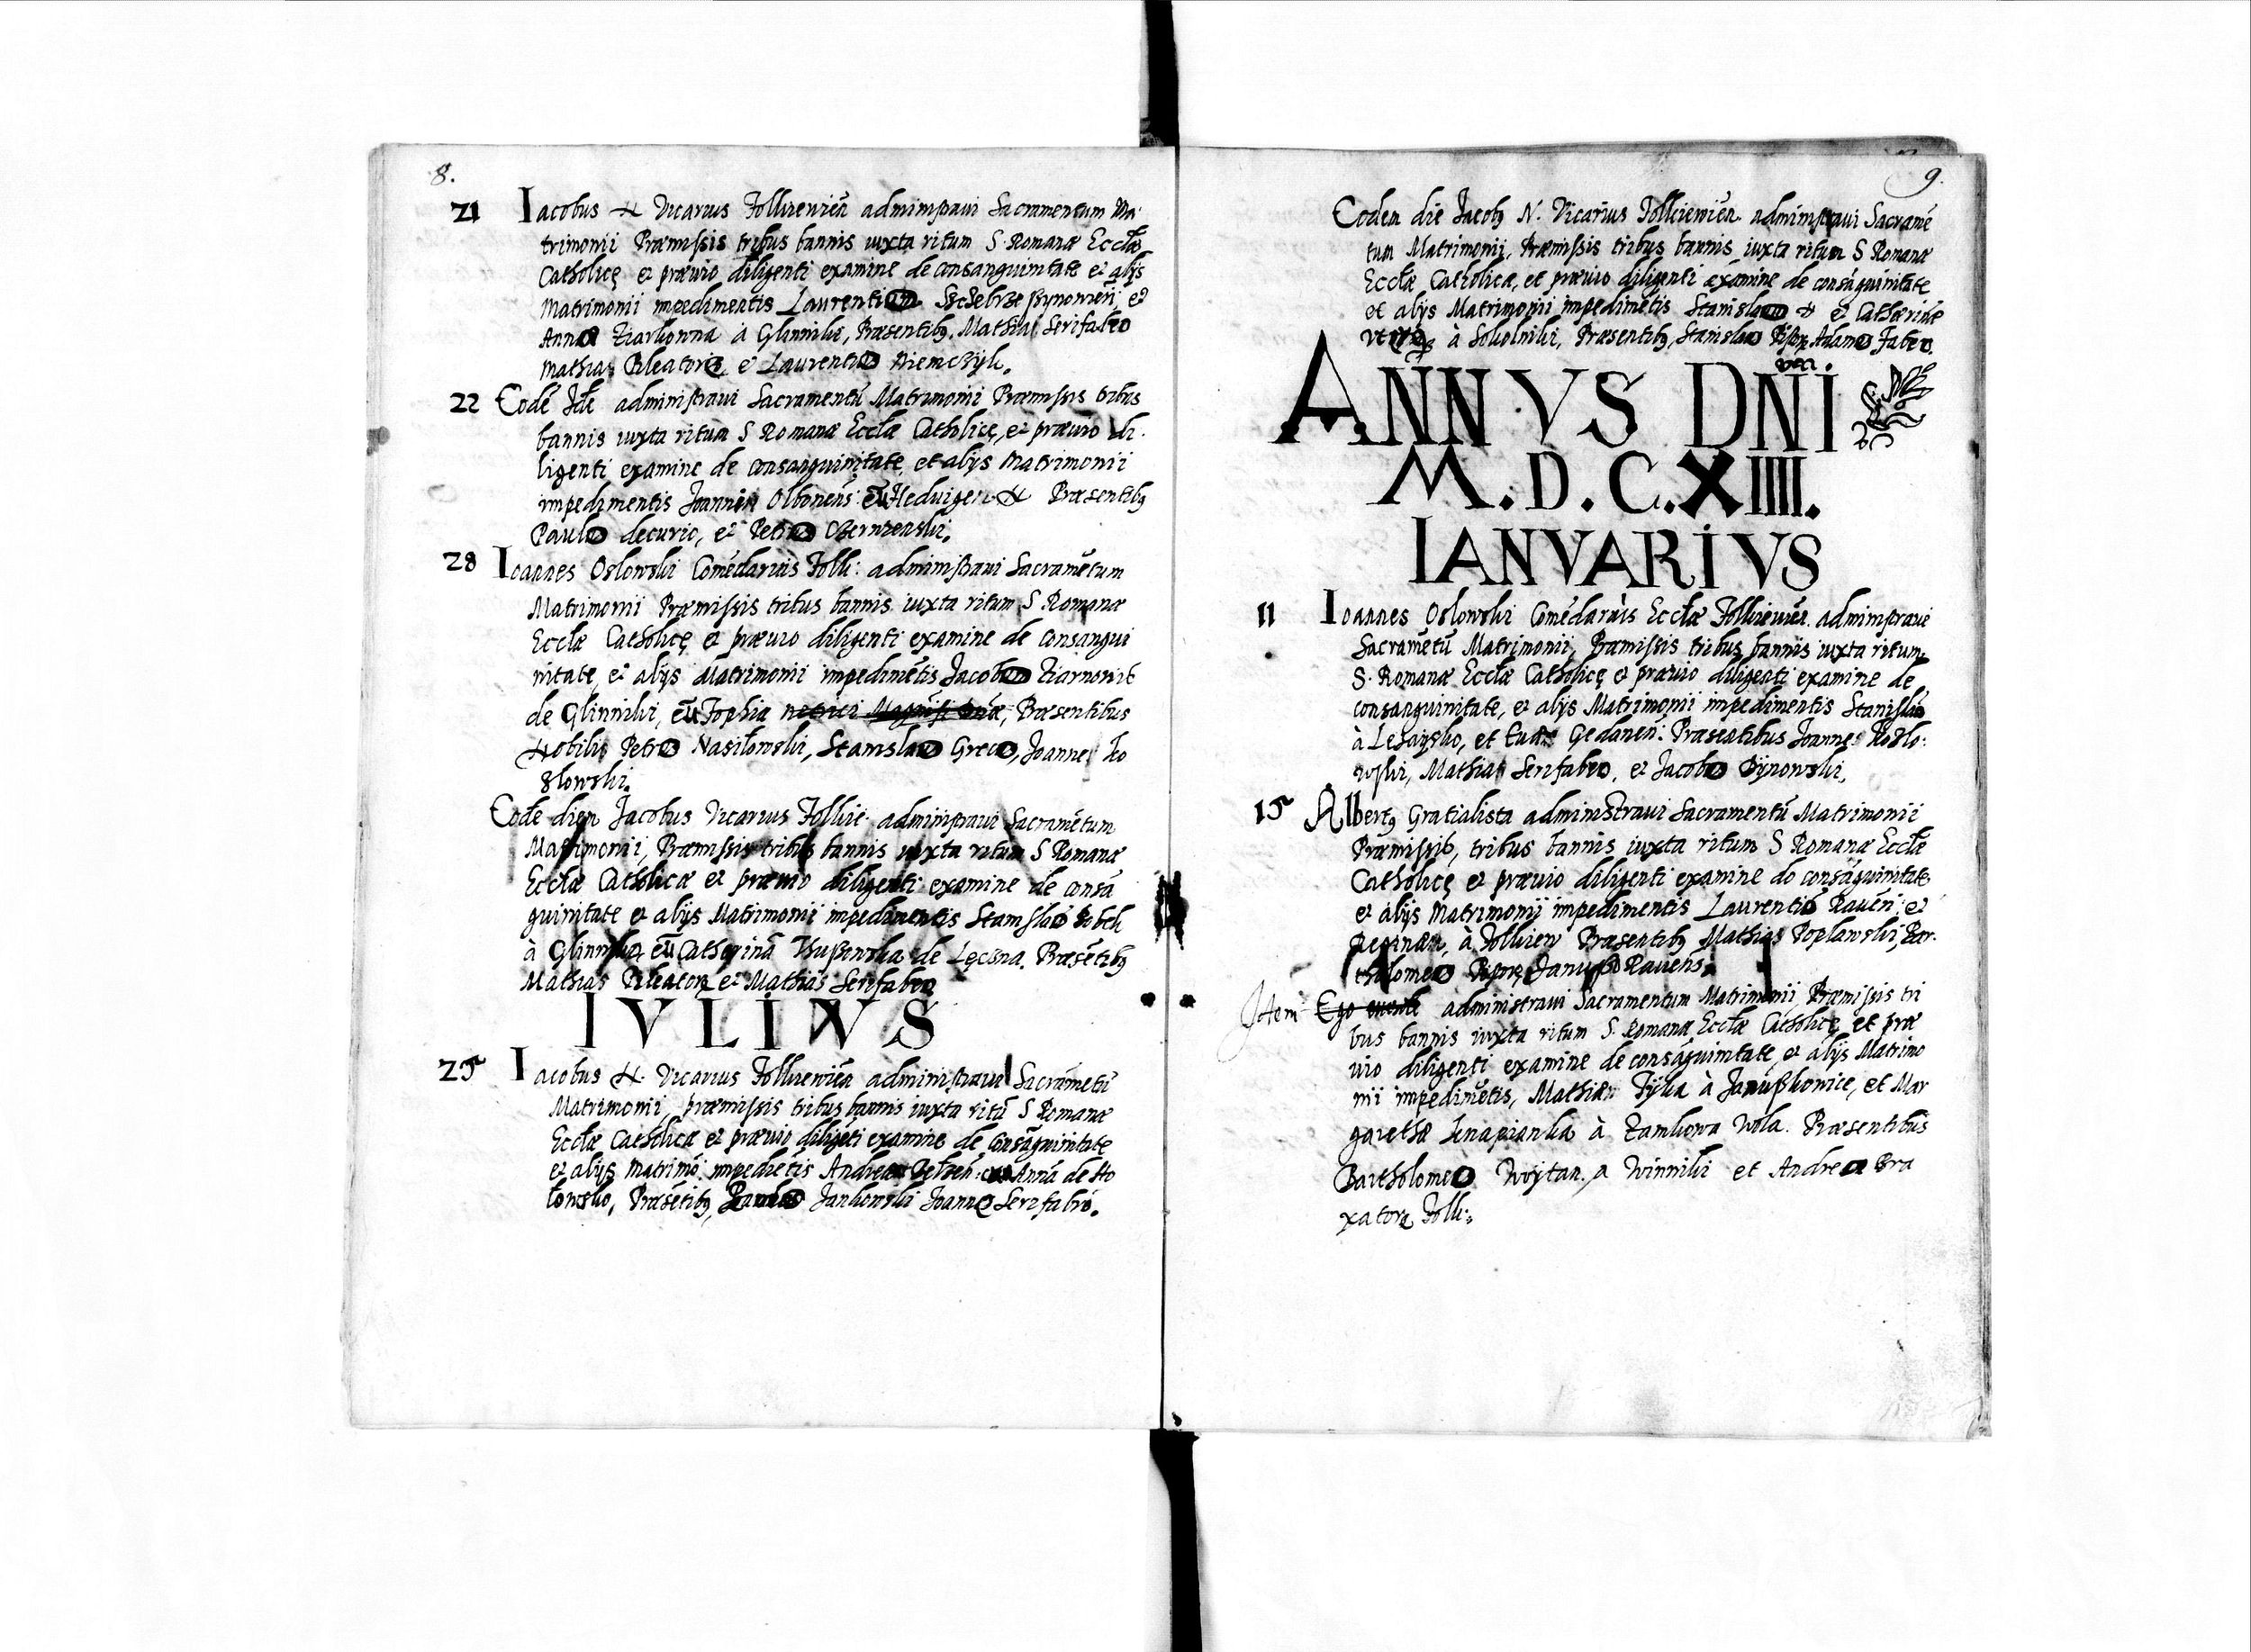 8.
21 Iacobus N Vicarius Zolkiewień administravi Sacramentum Ma:
trimonii Præmissis tribus bannis iuxta ritum S. Romanæ Ecclæ
Catholicę et prævio diligenti examine de consanguinitate et alijs
Matrimonii impedimentis et
Anna à Glinniki, Præsentibus, Mathia Serifabro
Mathia et Laurentio Niemczyk.
22 Eodē Idē administravi Sacramentū Matrimonii Præmissis tribus
bannis iuxta ritum S Romanæ Ecclæ Catholicę, et prævio di:
ligenti examine de consanguinitate, et alijs Matrimonii
impedimentis Joannin cū Hedvigen N Præsentibus
Paulo decurio, et Petro
28 Ioannes Oslowski Comēdarius Zolk: administravi Sacramētum
Matrimonii Præmissis tribus bannis iuxta ritum S Romanæ
Ecclæ Catholicę et prævio diligenti examine de consangui
nitate, et alijs Matrimonii impedimētis Jacobum
de Glinniki, cū Zophia Præsentibus
Nobili Petro Nasiłowski, Stanislao Greco, Joanne Ko
zlowski.
Eodē dien Jacobus Vicarius Zolkie: administravi Sacramētum
Matrimonii, Præmissis tribus bannis iuxta ritum S Romanæ
Ecclæ Catholicæ et prævio diligenti examine de consā
guinitate et alijs Matrimonii impedimentis Stanislao
à cū Catherinā de Lęczna. Præsētibus
Mathias et Mathias Serifabro
IVLIVS
25 Iacobus N. Vicarius Zolkiewiēn administravi Sacramētū
Matrimonii, præmissis tribus bannis iuxta ritū S Romanæ
Ecclæ Catholicæ et prævio diligēti examine de consāguinitate
et alijs matrimō: impediētis Andream Annā de Ho
łowsko, Præsētibus, Jankowski Joanne Serifabro.
9.
Eodem die Jacobus N. Vicarius Zolkiewień administravi Sacramē
tum Matrimonii, Præmissis tribus bannis iuxta ritum S Romanæ
Ecclæ Catholicæ, et prævio diligenti examine de consāguinitate
et alijs Matrimonii impedimētis Stanislao N et Catharinæ
à Sokolniki, Præsentibus, Stanislao Adamo Fabro.
ANNVS DNI
M.D.C.XIIII.
IANVARIVS
11 Ioannes Oslowski Comēdariùs Ecclæ Zolkiewień administravi
Sacramētū Matrimonii, Præmissis tribus bannis iuxta ritum
S. Romanæ Ecclæ Catholicę et prævio diligenti examine de
consanguinitate, et alijs Matrimonii impedimentis Stanislao
à Leżaysko, et Gedanēn: Præsentibus Joanne Kozlo:
wski, Mathia Serifabro, et Jacobo Bÿnowski,
15 Albertus Gratialista administravi Sacramentū Matrimonii
Præmissis, tribus bannis iuxta ritum S Romanæ Ecclæ
Catholicę et prævio diligenti examine de consāguinitate
et alijs Matrimonii impedimentis Laurentio Ravēn: et
Reginam, à Zolkiew Præsentibus Mathias Poplawski, Bar:
tholomeo Janusso Ravens.
Item Ego administravi Sacramentum Matrimonii Præmissis tri
bus bannis iuxta ritum S. Romanæ Ecclæ Catholicę, et præ
vio diligenti examine de consāguinitate et alijs Matrimo
nii impedimētis, Mathiam à et Mar
garetha à Wola. Præsentibus
Bartholomeo Woÿtan. a Winniki et Andrea Bra
xatore Zolk: